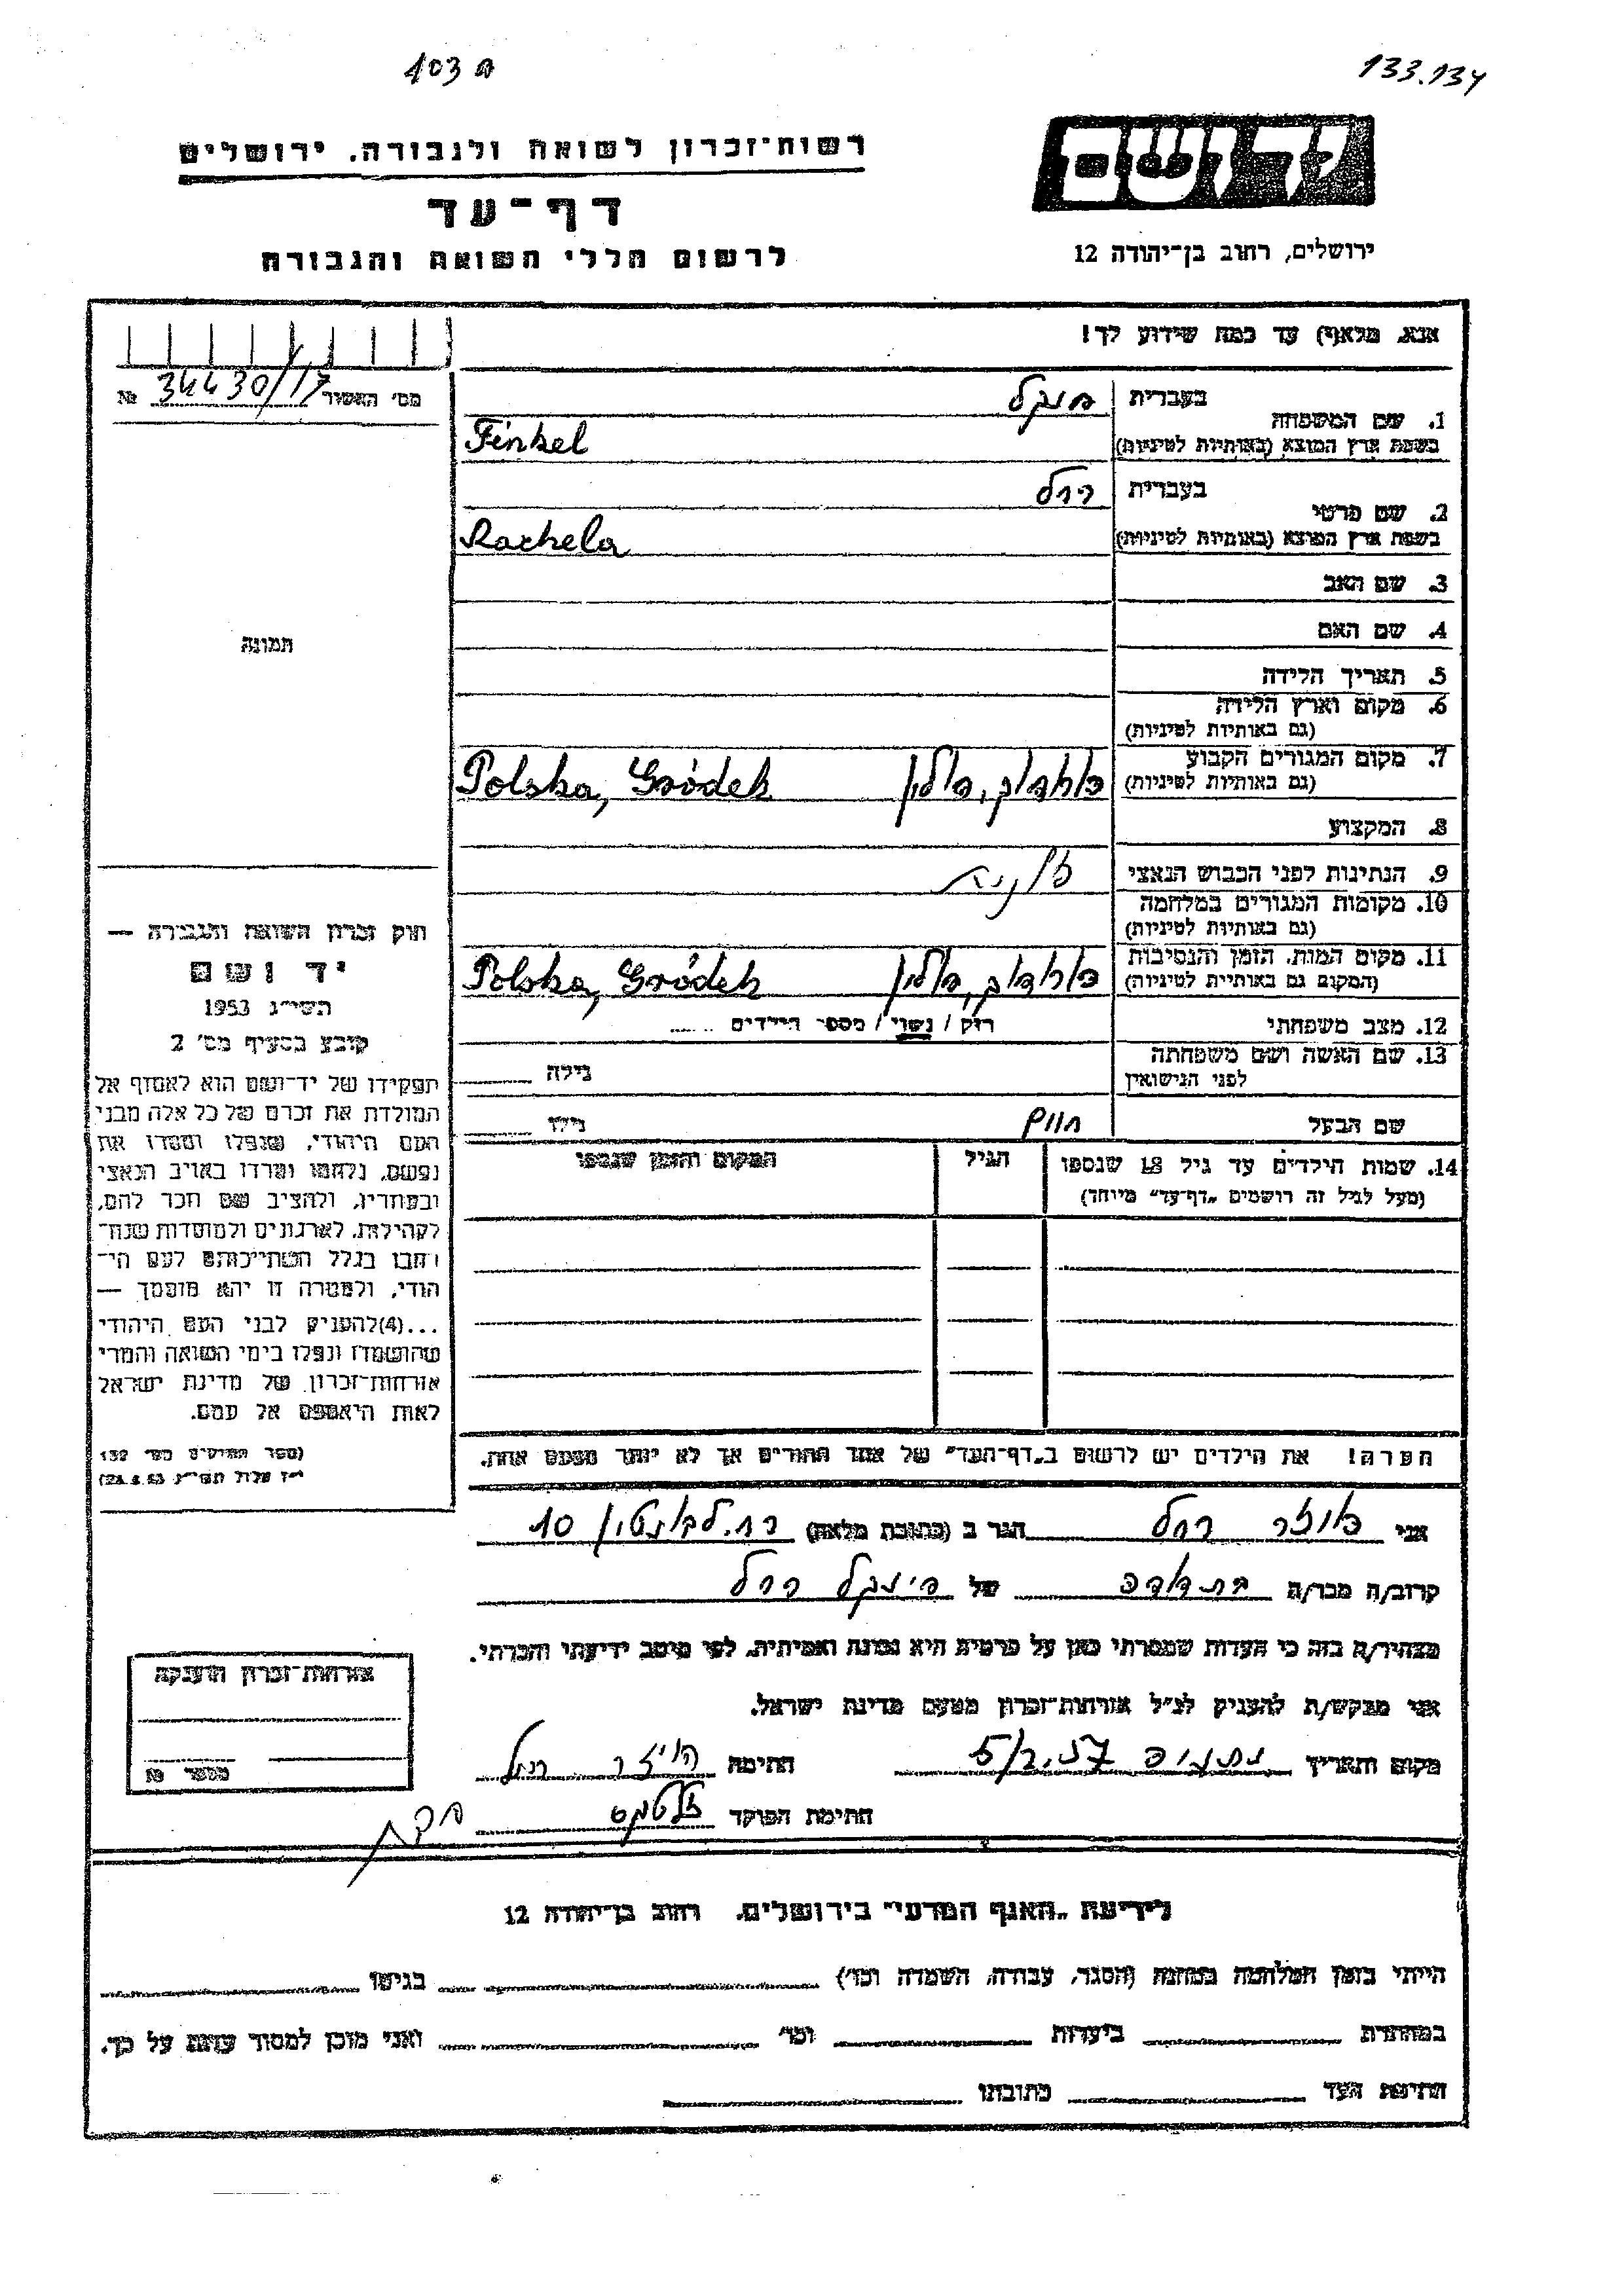 103 a 133.134
רשות־זכרון לשואה ולגבורה. ירושלים
דף־עד
לרשום חללי השואה והגבורה
ידושם
ירושלים, רחוב בן־יהודה 12
אנא, מלא(י) עד כמה שידוע לך!
מס' האשור 34430/17 №
1. שם המשפחה
בעברית פינקל
בשפת ארץ המוצא (באותיות לטיניות) Finkel
2. שם פרטי
בעברית רחל
בשפת ארץ המוצא (באותיות לטיניות) Rachela
3. שם האב
4. שם האם
5. תאריך הלידה
6. מקום וארץ הלידה
(גם באותיות לטיניות)
7. מקום המגורים הקבוע
(גם באותיות לטיניות) פולין Polska, Gródek
8. המקצוע
9. הנתינות לפני הכבוש הנאצי
10. מקומות המגורים במלחמה
(גם באותיות לטיניות)
11. מקום המות, הזמן והנסיבות
(המקום גם באותיות לטיניות) פולין Polska, Gródek
12. מצב משפחתי רווק / נשוי / מספר הילדים
13. שם האשה ושם משפחתה
לפני הנישואין גילה
שם הבעל חיים גילו
14. שמות הילדים עד גיל 18 שנספו הגיל המקום והזמן שנספו
(מעל לגיל זה רושמים „דף־עד” מיוחד)
תמונה
חוק זכרון השואה והגבורה —
יד ושם
תשי"ג 1953
קובע בסעיף מס' 2
תפקידו של יד־ושם הוא לאסוף אל
המולדת את זכרם של כל אלה מבני
העם היהודי, שנפלו ומסרו את
נפשם, נלחמו ומרדו באויב הנאצי
ובעוזריו, ולהציב שם וזכר להם,
לקהילות, לארגונים ולמוסדות שנח־
רבו בגלל השתייכותם לעם הי־
הודי, ולמטרה זו יהא מוסמך —
...(4) להעניק לבני העם היהודי
שהושמדו ונפלו בימי השואה והמרי
אזרחות־זכרון של מדינת ישראל
לאות היאספם אל עמם.
(ספר החוקים מס' 132
י"ז אלול תשי"ג 28.8.53)
הערה! את הילדים יש לרשום ב„דף־העד” של אחד ההורים אך לא יותר מפעם אחת.
אני רחל הגר ב (כתובת מלאה) 10
קרוב/ה מכר/ה בת דודה של פינקל רחל
מצהיר/ה בזה כי העדות שמסרתי כאן על פרטיה היא נכונה ואמיתית, לפי מיטב ידיעתי והכרתי.
אני מבקש/ת להעניק לנ"ל אזרחות־זכרון מטעם מדינת ישראל.
מקום ותאריך נתניה 5/2.57 חתימה רחל
חתימת הפוקד
אזרחות־זכרון הוענקה
מספר №
לידיעת „האגף המדעי” בירושלים, רחוב בן־יהודה 12
הייתי בזמן המלחמה במחנה (הסגר, עבודה, השמדה וכו') בגיטו
במחתרת ביערות וכו' ואני מוכן למסור עדות על כך.
חתימת העד כתובתו